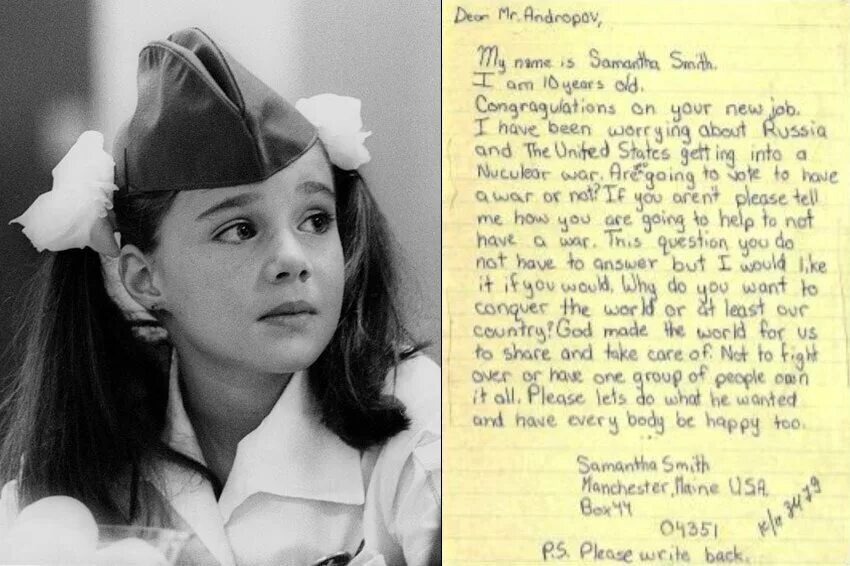 Dear Mr. Andropov,
My name is Samantha Smith.
I am 10 years old.
Congragulations on your new job.
I have been worrying about Russia
and The United States getting into a
Nuculear war. Are going to vote to have
a war or not? If you aren't please tell
me how you are going to help to not
have a war. This question you do
not have to answer but I would like
it if you would. Why do you want to
conquer the world or at least our
country? God made the world for us
to share and take care of. Not to fight
over or have one group of people own
it all. Please lets do what he wanted
and have every body be happy too.
Samantha Smith
Manchester, Maine USA
Box 44
04351
3479
P.S. Please write back.